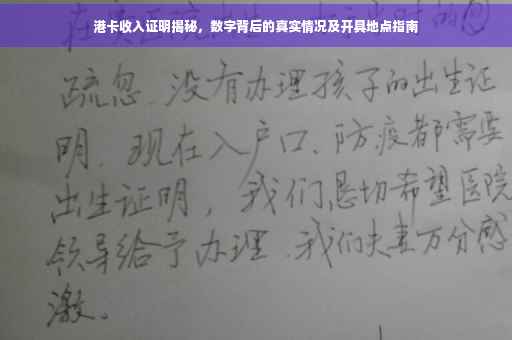 港卡收入证明揭秘，数字背后的真实情况及开具地点指南
疏忽、没有办理孩子的出生证
明、现在入户口、防疫都需要
出生证明，我们恳切希望医院
领导给予办理、我们夫妻万分感
激。